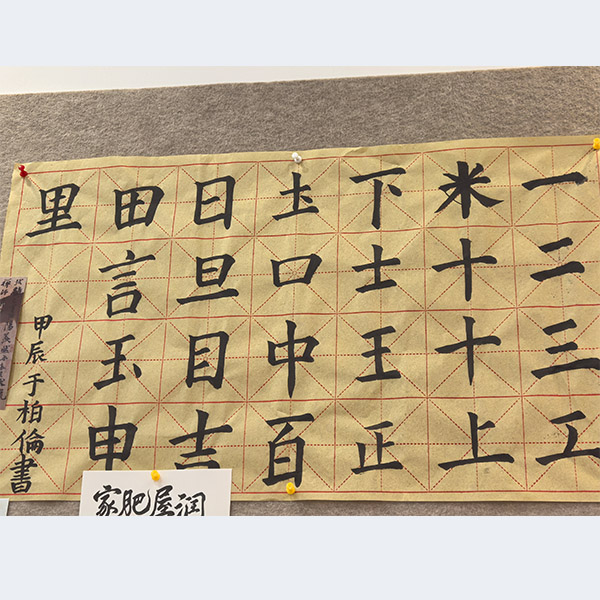 一二三工
米十十上
下士王正
土口中百
日旦目吉
田言玉申
里
甲辰于柏倫書
家肥屋润